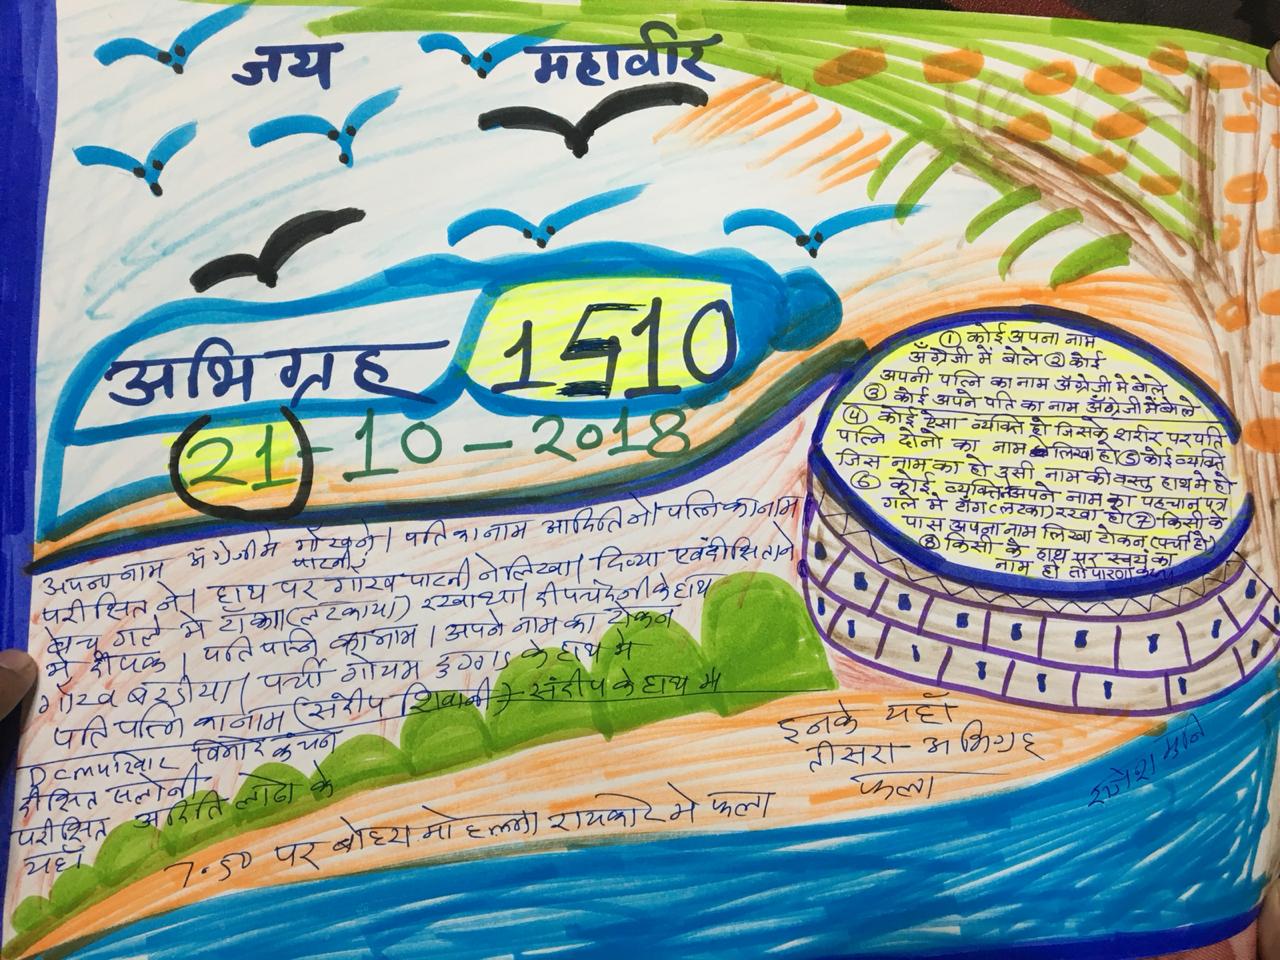 जय महावीर
अभिग्रह 1510
21-10-2018
① कोई अपना नाम
अँग्रेजी में बोले ② कोई
अपनी पत्नि का नाम अँग्रेजी मे बोले
③ कोई अपने पति का नाम अँग्रेजी में बोले
④ कोई ऐसा व्यक्ति हो जिसके शरीर पर पति
पत्नि दोनो का नाम लिखा हो ⑤ कोई व्यक्ति
जिस नाम का हो उसी नाम की वस्तु हाथ मे हो
⑥ कोई व्यक्ति अपने नाम का पहचान पत्र
गले मे टाँग (लटका) रखा हो ⑦ किसी के
पास अपना नाम लिखा टोकन (पर्ची हो)
⑧ किसी के हाथ पर स्वयं का
नाम हो तो पारणा
अपना नाम अँग्रेजी मे गोरव ने। पति का नाम अदिति ने। पत्नि का नाम
पाटनी
परीक्षित ने। हाथ पर गोरव पाटनी ने लिखा। दिव्या एवं दीक्षिता ने
गले मे टाँका (लटकाया) रखा था। के हाथ
मे दीपक। पति पत्नि का नाम। अपने नाम का टोकन
गोरव बरडीया। पर्ची गोयम डुंगड के हाथ मे
पति पत्नि का नाम (संदीप शिवानी) संदीप के हाथ मे
परिवार
सलोनी
परीक्षित अदिति लोढा के
यहाँ
7.50 पर मोहल्ला रायकोट मे फला
इनके यहाँ
तीसरा अभिग्रह
फला
मुनि